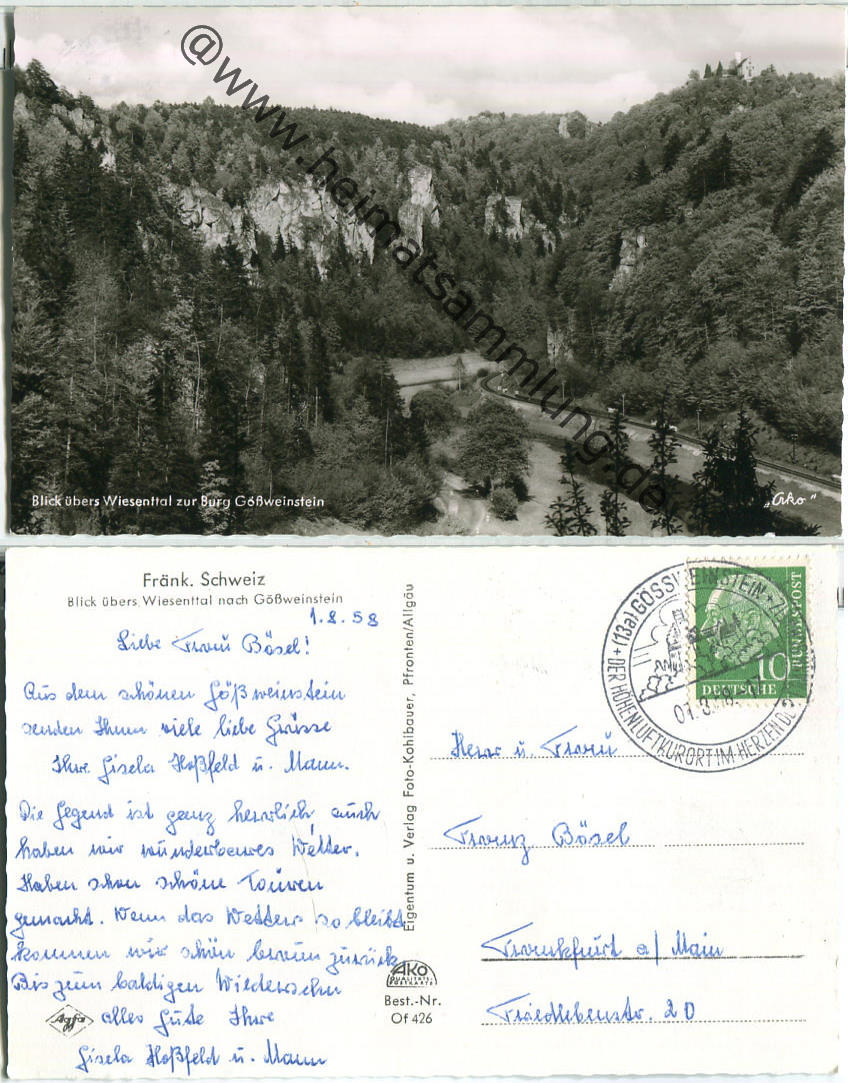 @www.heimatsammlung.de
Blick übers Wiesenttal zur Burg Gößweinstein
„Ako"
Fränk. Schweiz
Blick übers Wiesenttal nach Gößweinstein
1.8.58
Liebe Frau Bösel!
Aus dem schönen Gößweinstein
senden Ihnen viele liebe Grüsse
Ihre Gisela Hoßfeld u. Mann.
Die Gegend ist ganz herrlich, auch
haben wir wunderbares Wetter.
Haben schon schöne Touren
gemacht. Wenn das Wetter so bleibt
kommen wir schön braun zurück
Bis zum baldigen Wiedersehn
alles Gute Ihre
Gisela Hoßfeld u. Mann
Agfa
Eigentum u. Verlag Foto-Kohlbauer, Pfronten/Allgäu
AKO
QUALITÄTS-
POSTKARTE
Best.-Nr.
Of 426
(13a) GÖSSWEINSTEIN
+ DER HÖHENLUFTKURORT IM HERZEN DER
DEUTSCHE
BUNDESPOST
10
Herr u. Frau
Franz Bösel
Frankfurt a/Main
Friedlebenstr. 20